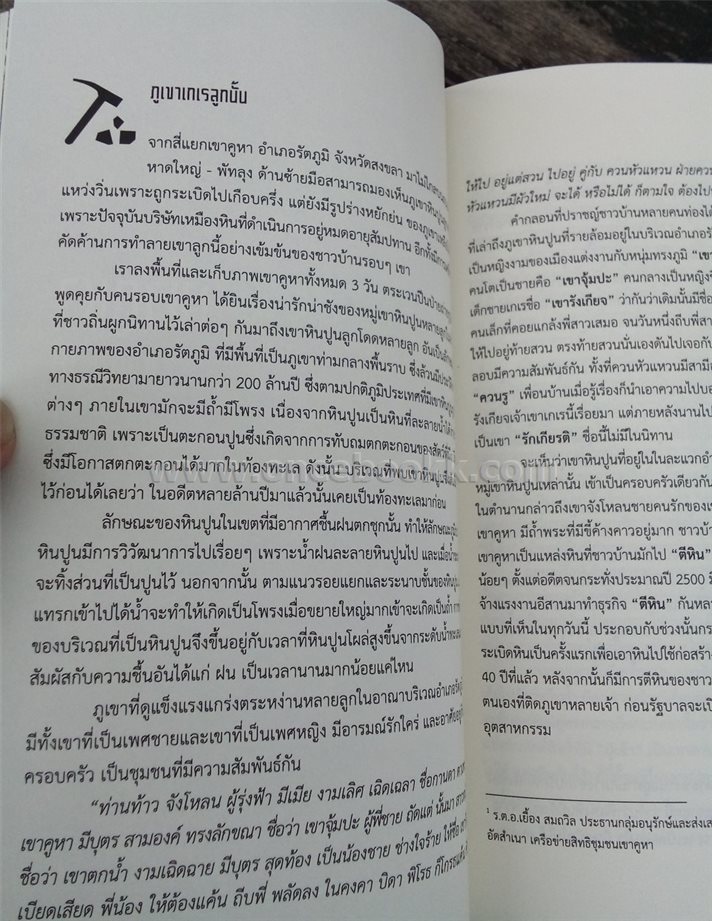 ภูเขาเกเรลูกนั้น
จากสี่แยกเขาคูหา อำเภอรัตภูมิ จังหวัดสงขลา มาไม่ไกล
หาดใหญ่ - พัทลุง ด้านซ้ายมือสามารถมองเห็นภูเขาหินปูน
แหว่งวิ่นเพราะถูกระเบิดไปเกือบครึ่ง แต่ยังมีรูปร่างหยักย่น ของภูเขา
เพราะปัจจุบันบริษัทเหมืองหินที่ดำเนินการอยู่หมดอายุสัมปทาน อีกทั้ง
คัดค้านการทำลายเขาลูกนี้อย่างเข้มข้นของชาวบ้านรอบๆ เขา
เราลงพื้นที่และเก็บภาพเขาคูหาทั้งหมด 3 วัน ตระเวนปีนป่าย
พูดคุยกับคนรอบเขาคูหา ได้ยินเรื่องน่ารักน่าชังของหมู่เขาหินปูนหลาย
ที่ชาวถิ่นผูกนิทานไว้เล่าต่อๆ กันมาถึงเขาหินปูนลูกโดดหลายลูก อันเป็น
กายภาพของอำเภอรัตภูมิ ที่มีพื้นที่เป็นภูเขาท่ามกลางพื้นราบ ซึ่งล้วนมี
ทางธรณีวิทยามายาวนานกว่า 200 ล้านปี ซึ่งตามปกติภูมิประเทศที่มีเขาหินปูน
ต่างๆ ภายในเขามักจะมีถ้ำมีโพรง เนื่องจากหินปูนเป็นหินที่ละลายน้ำได้
ธรรมชาติ เพราะเป็นตะกอนปูนซึ่งเกิดจากการทับถมตกตะกอนของสัตว์
ซึ่งมีโอกาสตกตะกอนได้มากในท้องทะเล ดังนั้น บริเวณที่พบเขาหินปูน
ไว้ก่อนได้เลยว่า ในอดีตหลายล้านปีมาแล้วนั้นเคยเป็นท้องทะเลมาก่อน
ลักษณะของหินปูนในเขตที่มีอากาศชื้นฝนตกชุกนั้น ทำให้ลักษณะ
หินปูนมีการวิวัฒนาการไปเรื่อยๆ เพราะน้ำฝนละลายหินปูนไป และเมื่อ
จะทิ้งส่วนที่เป็นปูนไว้ นอกจากนั้น ตามแนวรอยแยกและระนาบชั้นของ
แทรกเข้าไปได้น้ำจะทำให้เกิดเป็นโพรงเมื่อขยายใหญ่มากเข้าจะเกิดเป็นถ้ำ
ของบริเวณที่เป็นหินปูนจึงขึ้นอยู่กับเวลาที่หินปูนโผล่สูงขึ้นจากระดับน้ำทะเล
สัมผัสกับความชื้นอันได้แก่ ฝน เป็นเวลานานมากน้อยแค่ไหน
ภูเขาที่ดูแข็งแรงแกร่งตระหง่านหลายลูกในอาณาบริเวณอำเภอ
มีทั้งเขาที่เป็นเพศชายและเขาที่เป็นเพศหญิง มีอารมณ์รักใคร่ และอาศัย
ครอบครัว เป็นชุมชนที่มีความสัมพันธ์กัน
“ท่านท้าว จังโหลน ผู้รุ่งฟ้า มีเมีย งามเลิศ เฉิดเฉลา ชื่อกานดา
เขาคูหา มีบุตร สามองค์ ทรงลักขณา ชื่อว่า เขาจุ้มปะ ผู้พี่ชาย ถัดแต่ นั้นมา
ชื่อว่า เขาตกน้ำ งามเฉิดฉาย มีบุตร สุดท้อง เป็นน้องชาย ช่างใจร้าย ให้ชื่อ
เบียดเสียด พี่น้อง ให้ต้องแค้น ถีบพี่ พลัดลง ในคงคา บิดา พิโรธ
ให้ไป อยู่แต่สวน ไปอยู่ คู่กับ ควนหัวแหวน ฝ่ายควน
หัวแหวนมีผัวใหม่ จะได้ หรือไม่ได้ ก็ตามใจ ต้องไป
คำกลอนที่ปราชญ์ชาวบ้านหลายคนท่องได้
ที่เล่าถึงภูเขาหินปูนที่รายล้อมอยู่ในบริเวณอำเภอ
เป็นหญิงงามของเมืองแต่งงานกับหนุ่มทรงภูมิ
คนโตเป็นชายคือ “เขาจุ้มปะ” คนกลางเป็นหญิง
เด็กชายเกเรชื่อ “เขารังเกียจ” ว่ากันว่าเดิมนั้นมีชื่อ
คนเล็กที่คอยแกล้งพี่สาวเสมอ จนวันหนึ่งถีบพี่สา
ให้ไปอยู่ท้ายสวน ตรงท้ายสวนนั่นเองดันไปเจอกับ
ลอบมีความสัมพันธ์กัน ทั้งที่ควนหัวแหวนมีสามี
“ควนรู” เพื่อนบ้านเมื่อรู้เรื่องก็นำเอาความไปบอ
รังเกียจเจ้าเขาเกเรนี้เรื่อยมา แต่ภายหลังนานไป
เป็นเขา “รักเกียรติ” ชื่อนี้ไม่มีในนิทาน
จะเห็นว่าเขาหินปูนที่อยู่ในในละแวกอำ
หมู่เขาหินปูนเหล่านั้น เข้าเป็นครอบครัวเดียวกัน
ในตำนานกล่าวถึงเขาจังโหลนชายคนรักของเ
เขาคูหา มีถ้ำพระที่มีขี้ค้างคาวอยู่มาก ชาวบ้า
เขาคูหาเป็นแหล่งหินที่ชาวบ้านมักไป “ตีหิน”
น้อยๆ ตั้งแต่อดีตจนกระทั่งประมาณปี 2500
จ้างแรงงานอีสานมาทำธุรกิจ “ตีหิน” กันหล
แบบที่เห็นในทุกวันนี้ ประกอบกับช่วงนั้น
ระเบิดหินเป็นครั้งแรกเพื่อเอาหินไปใช้ก่อสร้า
40 ปีที่แล้ว หลังจากนั้นก็มีการตีหินของชาว
ตนเองที่ติดภูเขาหลายเจ้า ก่อนรัฐบาลจะเปิ
อุตสาหกรรม
¹ ร.ต.อ.เยื้อง สมถวิล ประธานกลุ่มอนุรักษ์และส่งเส
อัดสำเนา เครือข่ายสิทธิชุมชนเขาคูหา